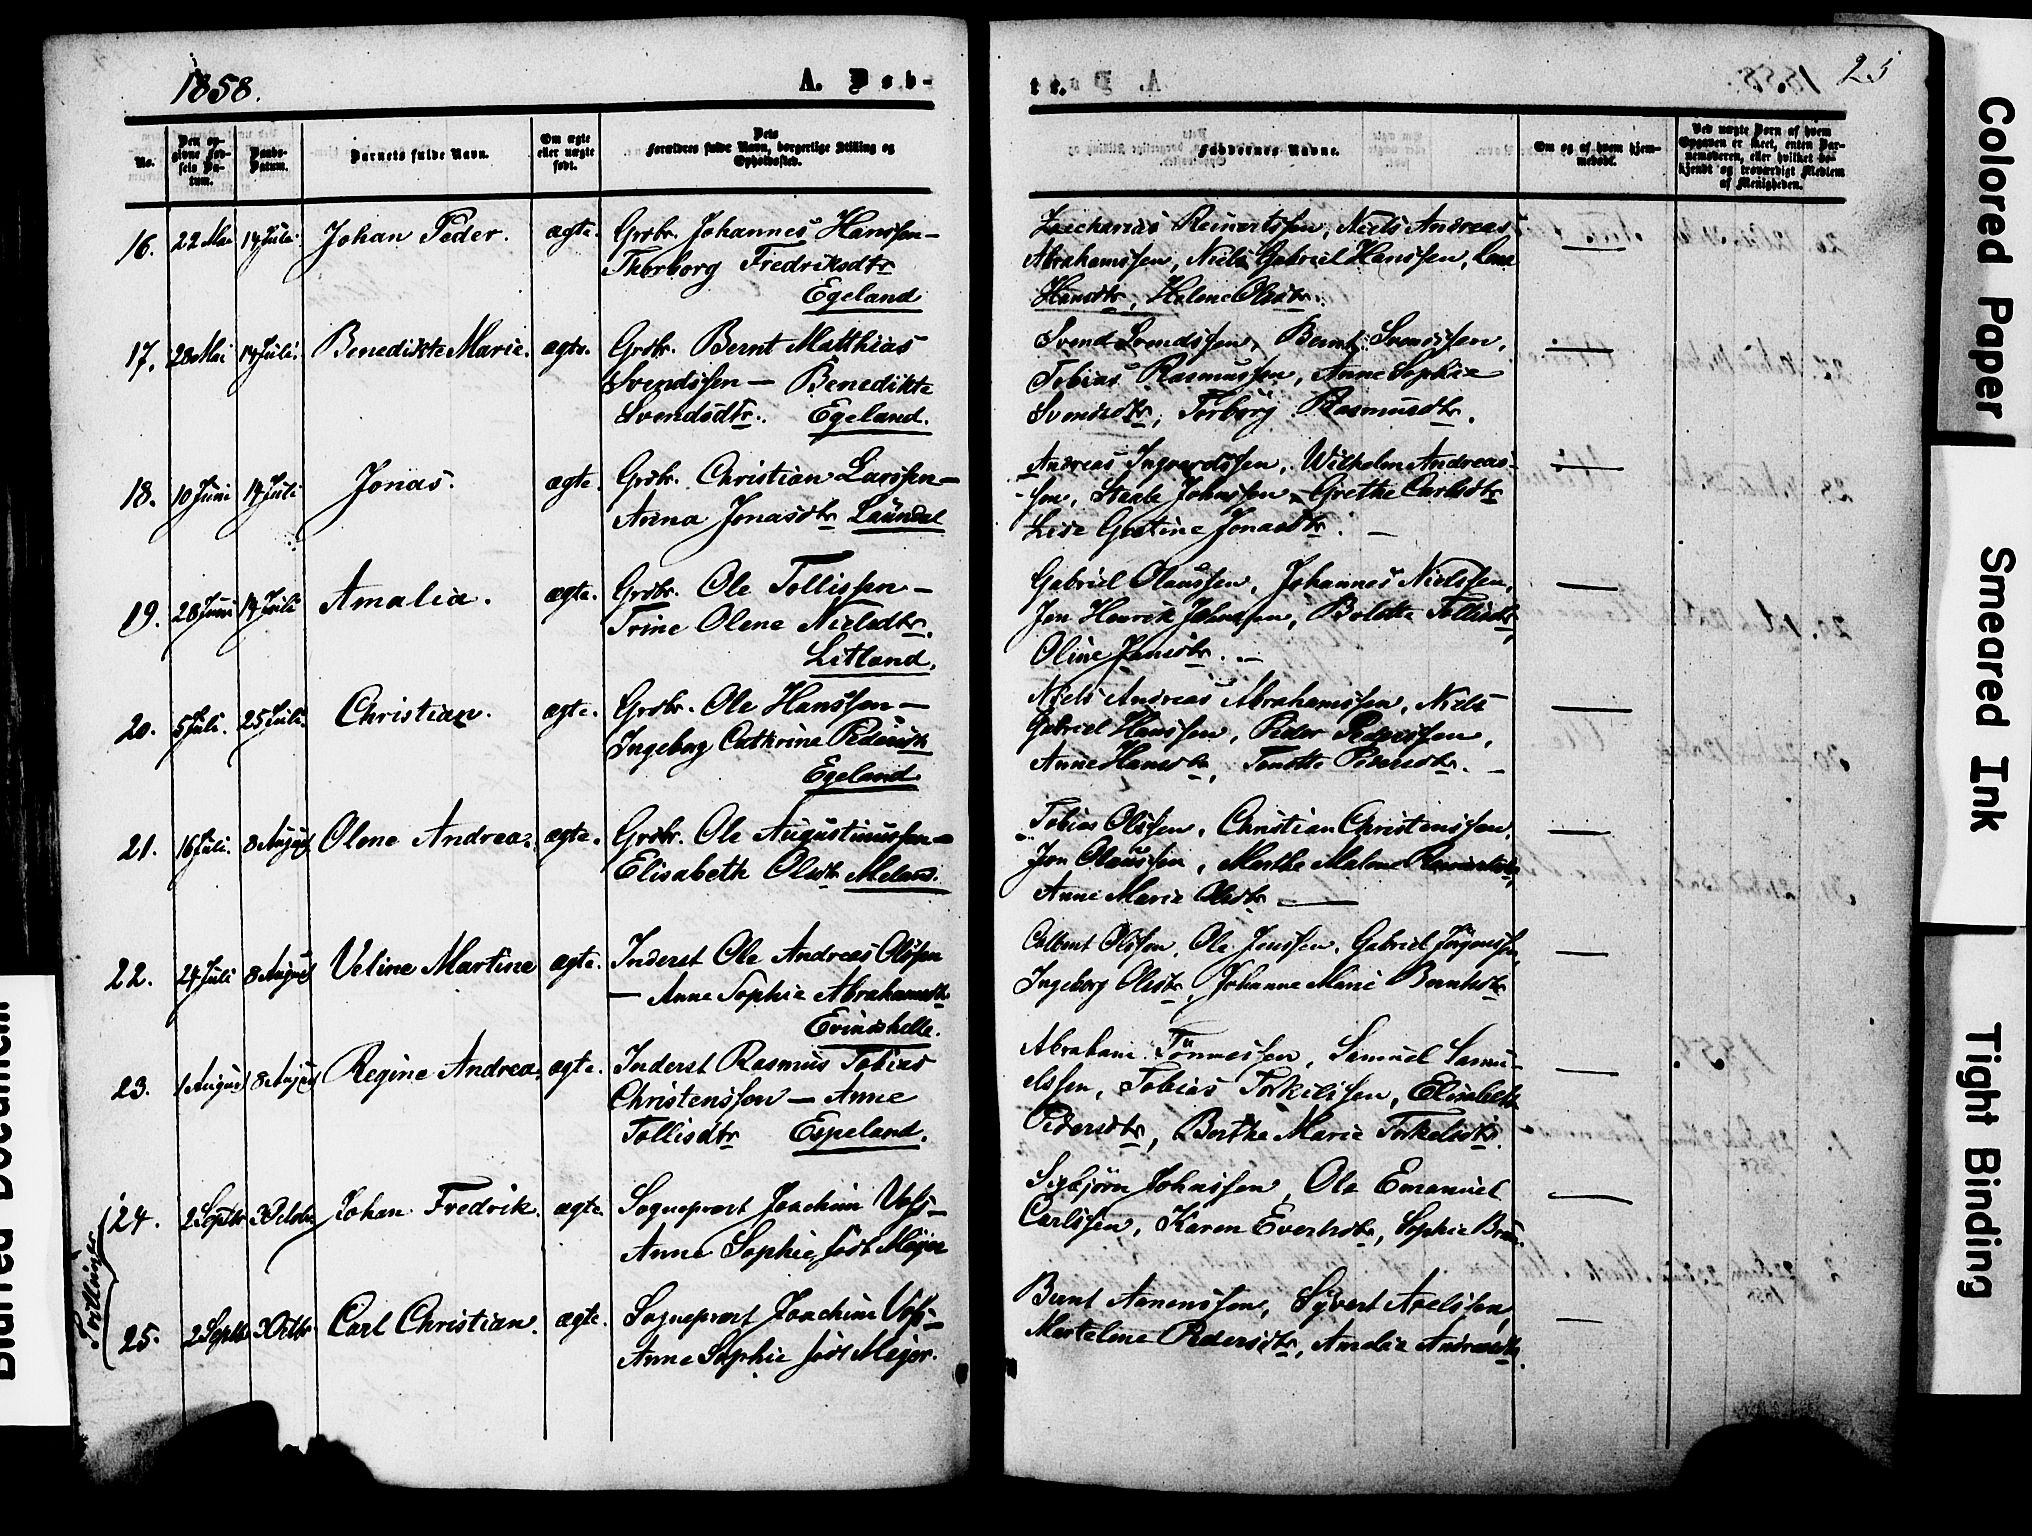 1858.
A. Døb-
No.
Den op-
givne Fød-
sels Da-
tum.
Daabs-
Datum.
Barnets fulde Navn.
Om ægte
eller uægte
født.
Dets
Forældres fulde Navn, borgerlige Stilling og
Opholdssted.
16. 22 Mai 14 Juli Johan Peder. ægte. Grbr. Johannes Hanssen —
Thorborg Fredriksdtr
Egeland
17. 28 Mai 14 Juli. Benedikte Marie. ægte. Grbr. Bernt Matthias
Svendssen — Benedikte
Svendsdtr. Egeland.
18. 10 Juni 14 Juli Jonas. ægte. Grbr. Christian Larssen —
Anna Jonasdtr Laundal
19. 28 Juni 14 Juli Amalia. ægte. Grbr. Ole Tollissen —
Trine Olene Nielsdtr.
Litland.
20. 5 Juli. 25 Juli. Christian. ægte. Grbr. Ole Hanssen —
Ingeborg Cathrine Pedersdtr
Egeland
21. 16 Juli. 8 August Olene Andrea. ægte. Grbr. Ole Augustinussen —
Elisabeth Olsdtr Meland.
22. 24 Juli 8 August Veline Martine ægte. Inderst Ole Andreas Olssen
— Anne Sophie Abrahamsdtr
Erindshelle.
23. 1 August 8 August Regine Andrea. ægte. Inderst Rasmus Tobias
Christenssen — Anne
Tollisdtr Espeland.
Tvillinger
24. 2 Septbr 3 Octobr Johan Fredrik. ægte. Sogneprest Joachim Vofs —
Anne Sophie født Meijer
25. 2 Septbr 3 Octbr Carl Christian. ægte. Sogneprest Joachim Vofs —
Anne Sophie født Meijer.
te.
25
Faddernes Navne.
Om og af hvem hjem-
medøbt.
Ved uægte Børn af hvem
Opgaven er skeet, enten Bar-
nemoderen, eller hvilket be-
kjendt og troværdigt Medlem
af Menigheden.
Zacharias Reinertssen, Niels Andreas
Abrahamssen, Niels Gabriel Hanssen, Lena
Hansdtr, Helene Olsdtr.
Svend Svendssen, Bernt Svendssen,
Tobias Rasmussen, Anne Sophie
Svendsdtr, Torborg Rasmusdtr.
Andreas Ingvardssen, Wilhelm Andreas-
sen, Staale Johnssen, Grethe Carlsdtr
Lise Gurtine Jonasdtr. —
Gabriel Olaussen, Johannes Nielssen,
Jon Henrik Johnssen, Bolette Tollisdtr,
Oline Jonsdtr. —
Niels Andreas Abrahamssen, Niels
Gabriel Hanssen, Peder Pederssen,
Anne Hansdtr, Tonette Pedersdtr. —
Tobias Olssen, Christian Christenssen,
Jon Olaussen, Marthe Malene Reinertsdtr,
Anne Marie Olsdtr —
Olssen, Ole Jenssen, Gabriel Jørgenssen,
Ingeborg Olsdtr, Johanne Marie Berntsdtr
Abraham Tønnessen, Samuel Samu-
elssen, Tobias Torkilssen, Elisabeth
Pedersdtr, Berthe Marie Torkelsdtr.
Sigbjørn Johnssen, Ole Emanuel
Carlssen, Karen Evertsdtr, Sophie Brun.
Bernt Aanenssen, Syvert Axelssen,
Martelene Pedersdtr, Amalie Andreasdtr.
Colored Paper
Smeared Ink
Tight Binding
Blurred Document